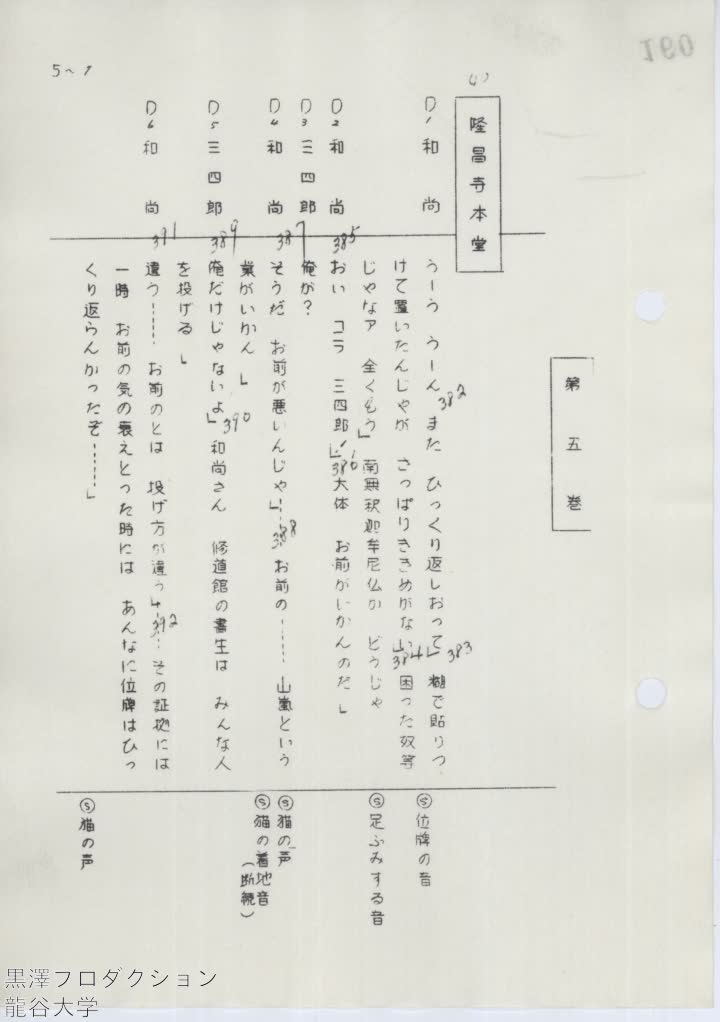 5~1
第五巻
(4)
隆昌寺本堂
D1 和尚
うーう うーん また ひっくり返しおって」糊で貼りつ
382
383
けて置いたんじゃが さっぱりききめがない」困った奴等
384
じゃなァ 全くもう」南無釈迦牟尼仏か どうじゃ
D2 和尚
385
おい コラ 三四郎!」大体 お前がいかんのだ」
386
D3 三四郎
俺が?
387
D4 和尚
そうだ お前が悪いんじゃ」……お前の…… 山嵐という
388
業がいかん」
D5 三四郎
389
俺だけじゃないよ」和尚さん 修道館の書生は みんな人
390
を投げる」
D6 和尚
391
違う…… お前のとは 投げ方が違う」……その証拠には
392
一時 お前の気の衰えとった時には あんなに位牌はひっ
くり返らんかったぞ……」
Ⓢ位牌の音
Ⓢ足ぶみする音
Ⓢ猫の声
Ⓢ猫の着地音
(断続)
Ⓢ猫の声
091
黒澤プロダクション
龍谷大学